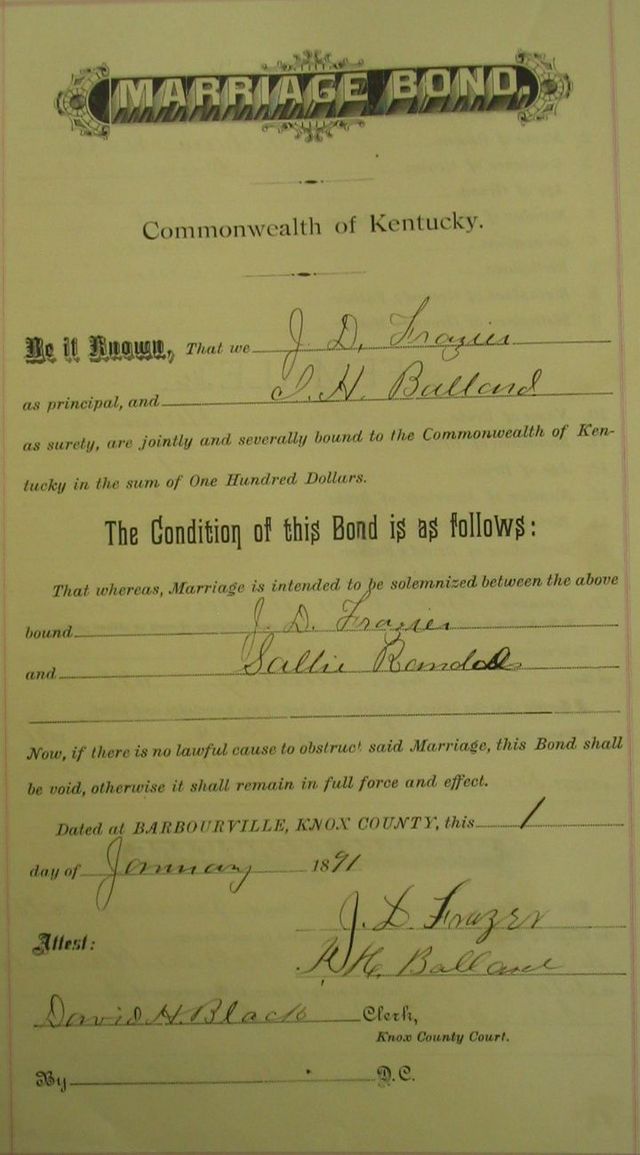 MARRIAGE BOND.
Commonwealth of Kentucky.
Be it Known, That we J. D. Frazier
as principal, and H. Ballard
as surety, are jointly and severally bound to the Commonwealth of Ken-
tucky in the sum of One Hundred Dollars.
The Condition of this Bond is as follows:
That whereas, Marriage is intended to be solemnized between the above
bound J. D. Frazier
and Sallie
Now, if there is no lawful cause to obstruct said Marriage, this Bond shall
be void, otherwise it shall remain in full force and effect.
Dated at BARBOURVILLE, KNOX COUNTY, this 1
day of January 1891
J. D. Frazer
Attest:
H. Ballard
David H. Black Clerk,
Knox County Court.
By D.C.